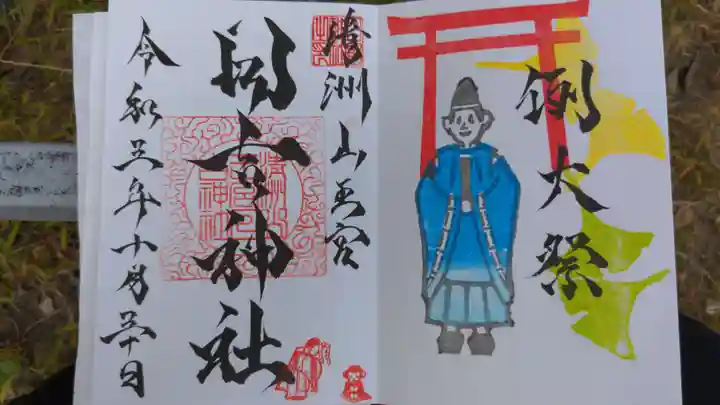 例大祭
清洲山王宮
日吉神社
令和三年十月三十日